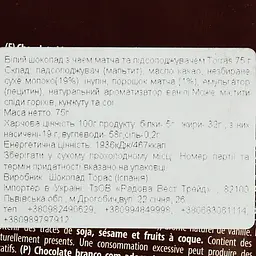 Білий шоколад з чаєм матча та підсолоджувачем Torras 75 г
Склад: підсолоджувач (мальтит), масло какао, незбиране
сухе молоко(19%), інулін, порошок матча (1%), емульгатор
(лецитин), натуральний ароматизатор ванілі. Може містити
сліди горіхів, кунжуту та сої.
Маса нетто: 75г
Харчова цінність 100г продукту: білки- 5г, жири- 32г, з них
насичені-19 г, вуглеводи- 58г, сіль-0,2г.
Енергетична цінність: 1936кДж/467ккал
Зберігати у сухому прохолодному місці. Номер партії та
термін придатності вказано на упаковці.
Виробник: Шоколад Торас (Іспанія)
Імпортер в Україні: ТзОВ «Радова Вест Трейд», 82100
Львівська обл., м.Дрогобич, вул. 22 січня, 26
тел.: +380982490629, +380994849999,
+380989797912
traces de soja, sésame et fruits à coque. Contient des
naturellement présents. Une consommation excessive peut produire des
(P) Chocolate branco com